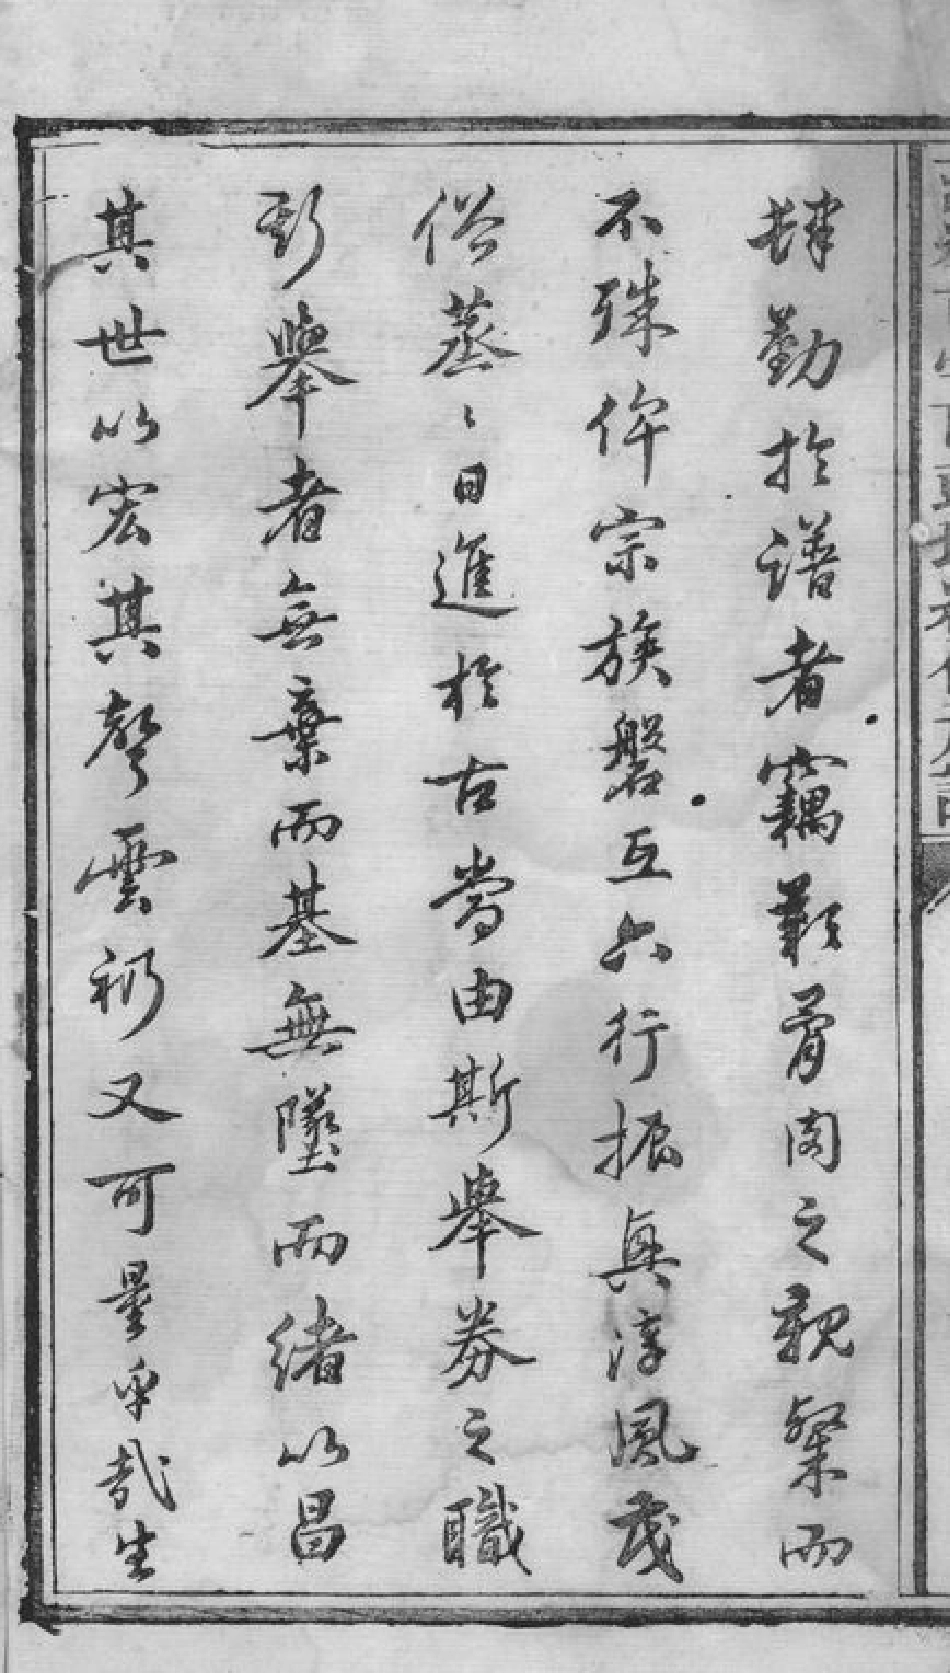 肆勤於譜者竊歎骨肉之親粲而
不殊俾宗族磐互六行振興淳風茂
俗蒸〻日進於古當由斯舉券之職
斯舉者無棄而基無墜而緒以昌
其世以宏其聲雲礽又可量乎哉生